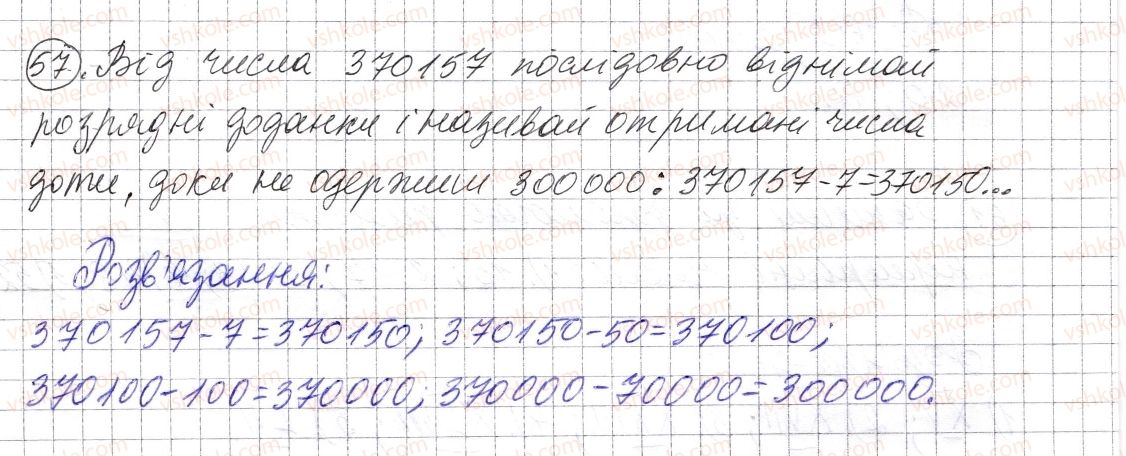 57. Від числа 370157 послідовно віднімай
розрядні доданки і називай отримані числа
доти, доки не одержиш 300000: 370157-7=370150...
Розв'язання:
370157-7=370150; 370150-50=370100;
370100-100=370000; 370000-70000=300000.